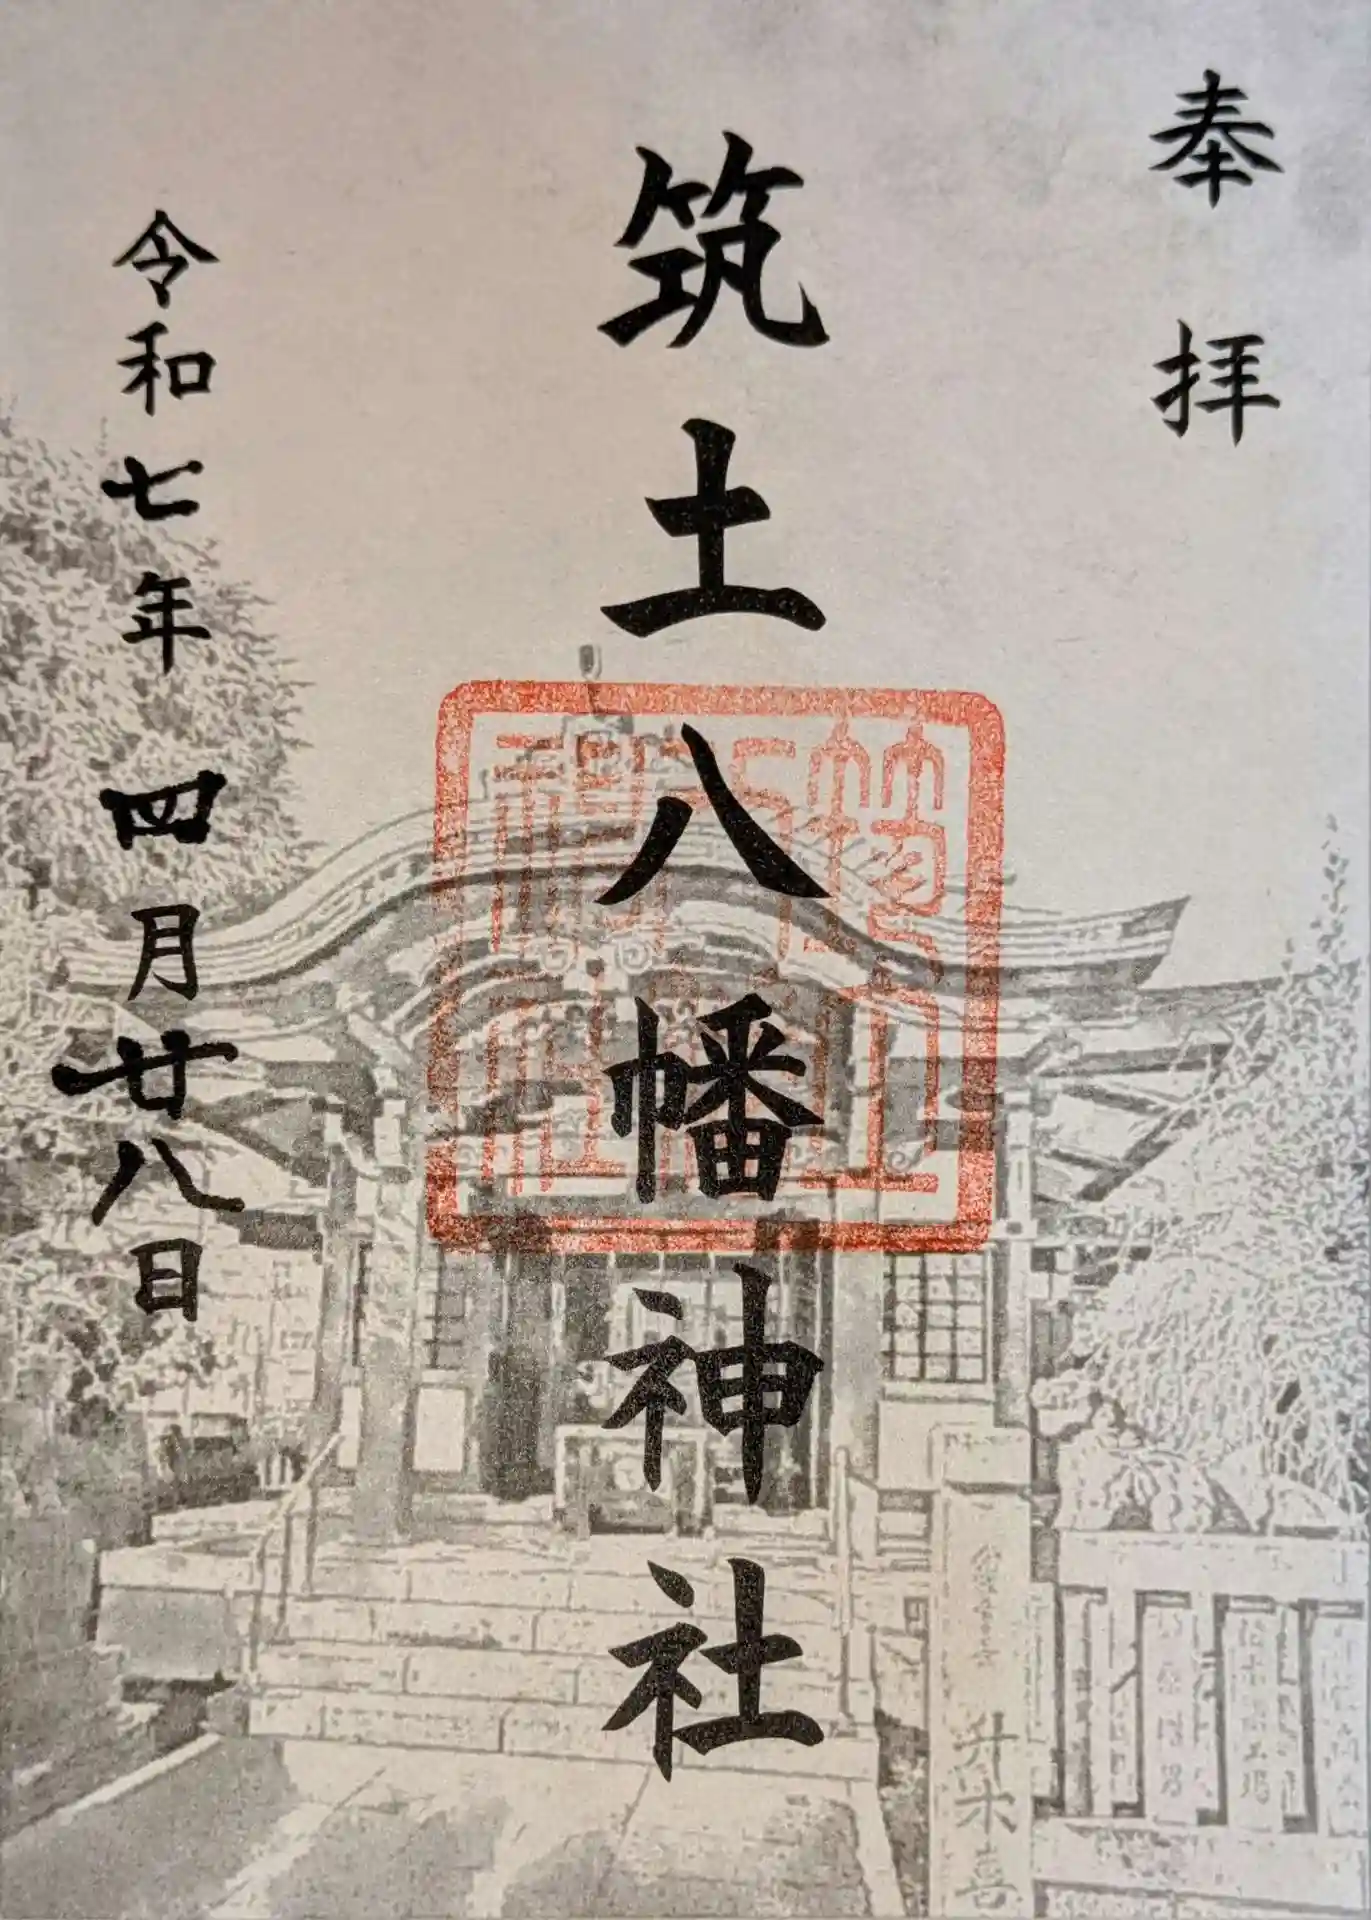 奉拝
筑土八幡神社
令和七年四月廿八日
筑土八幡神社